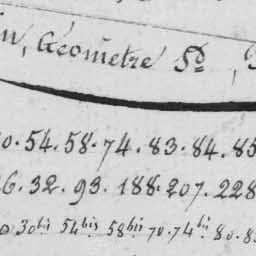 Géomètre Sr,
54. 58. 74. 83. 84. 85
6. 32. 93. 188. 207. 228
30bis 54bis 58bis 70. 74bis 80. 8